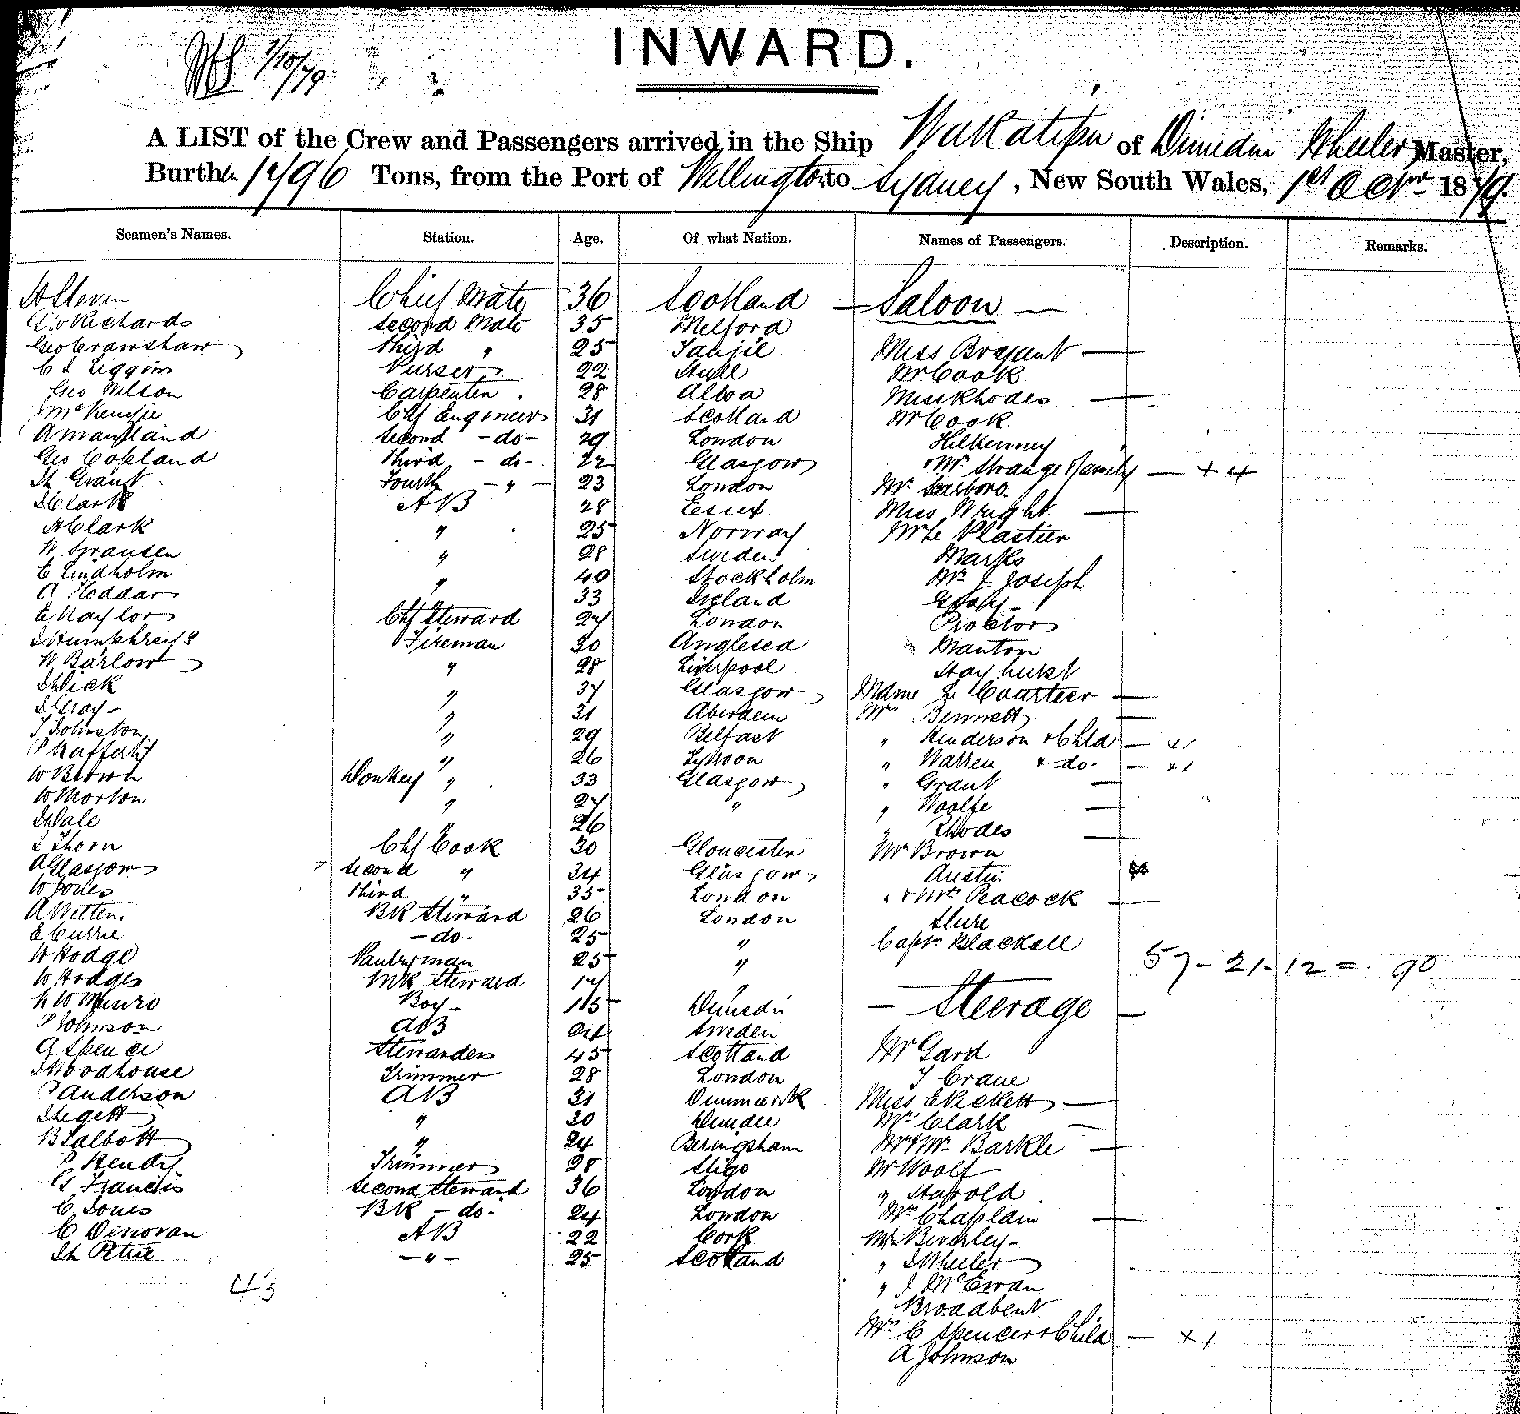 1/10/79
INWARD.
A LIST of the Crew and Passengers arrived in the Ship Wakatipu of Dunedin Wheeler Master,
Burthn 1796 Tons, from the Port of Wellington to Sydney, New South Wales, 1st Octr 1879.
Seamen's Names. Station. Age. Of what Nation. Names of Passengers. Description. Remarks.
Chief Mate 36 Scotland — Saloon —
Richards Second Mate 35 Melford
Geo Crawshaw Third " 25
Miss Bryant —
Purser 22 Hull Mr Cook
Geo Wilson Carpenter. 28 Alloa Miss Rhodes —
McKenzie Chf Engineer 31 Scotland Mr Cook
A Maitland Second -do- 29 London Kilkenney
Geo Copland third - do- 22 Glasgow & Mrs Strange & family — x 4
Grant Fourth - " - 23 London Mr Scarboro.
Clark AB 28 Essex Miss Wright —
H Clark " 25 Norway Mr Le Plastier
" 28 Sweden Marks
E Lindholm " 40 Stockholm Mr J Joseph
A Hoddar " 33 Ireland
E Naylor Chf Steward 27 London Proctor
Humphreys Fireman 30 Anglesea Manton
W Barlow " 28 Liverpool Stayhurst
Dick " 37 Glasgow Mdme Le Courtier —
Gray " 31 Aberdeen Mrs Bennett —
T Johnston " 29 Belfast " Henderson & Child — x1
P Rafferty " 26 " Warren & do - — x1
W Brown Donkey " 33 Glasgow " Grant —
W Morton " 27 " " Woolfe —
Dale " 26 " Rhodes —
Thorn Chf Cook 30 Gloucester Mr Brown
A Glasgow Second " 34 Glasgow Austin
W Jones third " 35 London " & Mrs Peacock —
A Witten. BK Steward 26 London
E Currie -do- 25 " Captn Blackall
W Hodge Pantryman 25 "
57 - 21 - 12 = 90
W Hodges Mk Steward 17 "
Munro Boy 15 Dunedin — Steerage —
P Johnson AB Sweden
A Spence Stewardess 45 Scotland Mr Gard
Woodhouse Trimmer 28 London T Crane
P Anderson AB 31 Denmark Miss E Rickett —
Legett " 30 Dundee Mrs Clark —
B Talbott " 24 Beringsham Mr & Mrs Barkle —
P Hendry Trimmer 28 Sligo Mr Woolf
G Francis Second Steward 36 London " Harold
C Jones BK - do- 24 London Mrs Chaplain —
C Denovan AB 22 Cork Mr Beverley
Petrie - " - 25 Scotland " Wheeler
43
" J McEwan
Broadbent
Mrs C Spencer & Child — x1
A Johnson